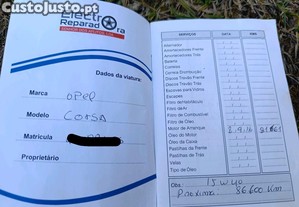 CustoJusto.pt
Electro
Reparadora
Dados da viatura:
Marca opel
Modelo CORSA
Matricula
Proprietário
SERVIÇOS DATA KMS
Alternador
Amortecedores Frente
Amortecedores Trás
Bateria
Correia
Correia Distribuição
Discos Travão Frente
Discos Travão Trás
Escovas para Vidros
Escapes
Filtro de Habitáculo
Filtro de Ar
Filtro de Combustível
Filtro de Óleo
Motor de Arranque
Óleo do Motor
Óleo da Caixa
Pastilhas da Frente
Pastilhas de Trás
Velas
Obs: 15W40
Proxima 86600 Km